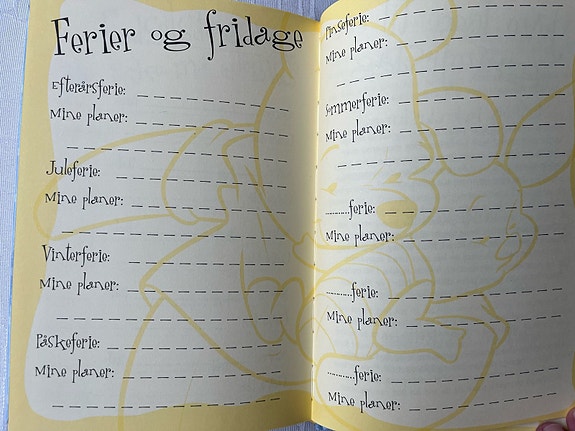 Ferier og fridage
Efterårsferie:
Mine planer:
Juleferie:
Mine planer:
Vinterferie:
Mine planer:
Påskeferie:
Mine planer:
Pinseferie:
Mine planer:
Sommerferie:
Mine planer:
..........ferie:
Mine planer:
..........ferie:
Mine planer:
..........ferie:
Mine planer: